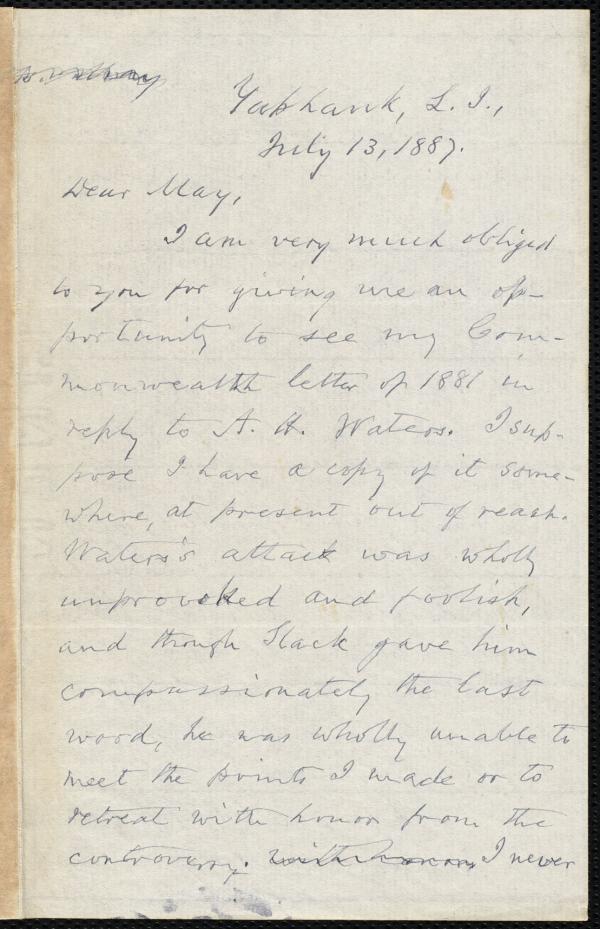 Yaphank, L. I.,
July 13, 1887.
Dear May,
I am very much obliged
to you for giving me an op-
portunity to see my Com-
monwealth letter of 1881 in
reply to A. H. Waters. I sup-
pose I have a copy of it some-
where, at present out of reach.
Waters's attack was wholly
unprovoked and foolish,
and though Slack gave him
compassionately the last
word, he was wholly unable to
meet the points I made or to
retreat with honor from the
controversy. with honor, I never